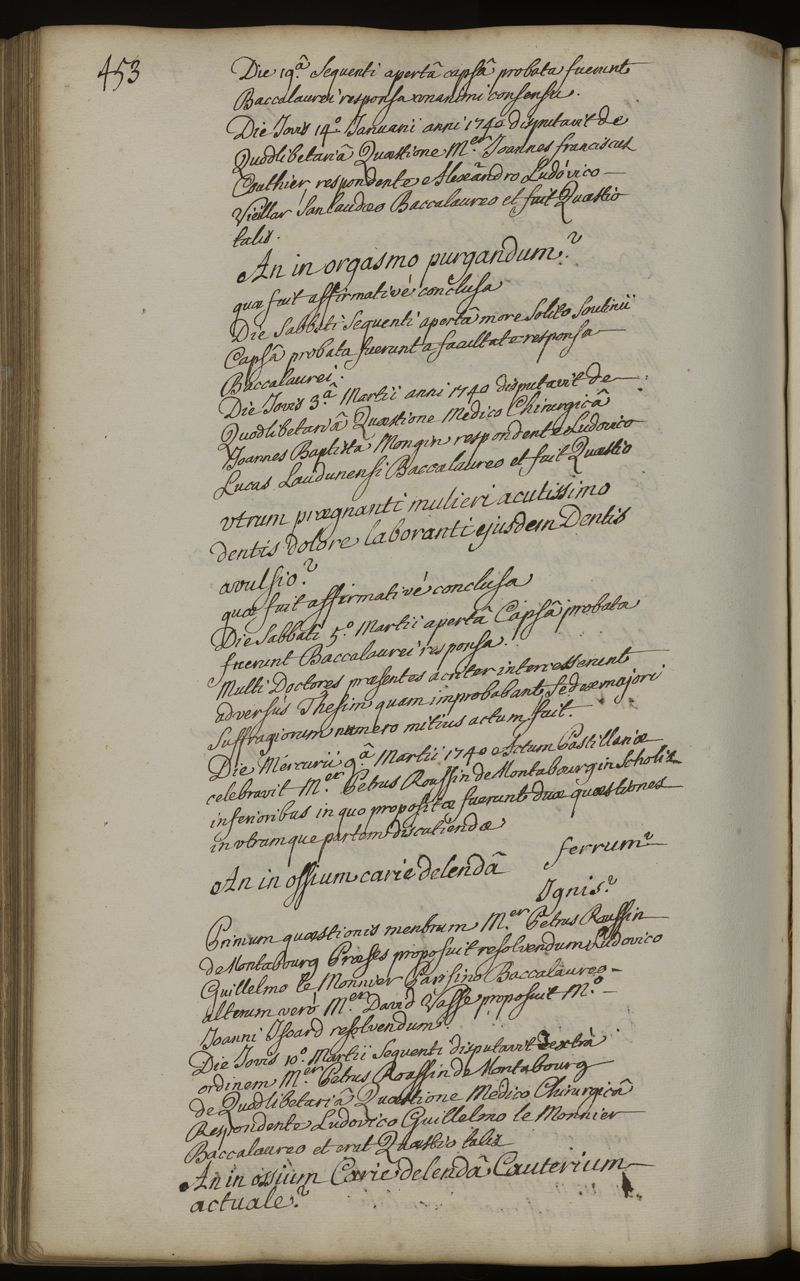 453
Die 19.â Sequenti apertâ capsâ probata fuerunt
Baccalaurei responsa unanimi consensu.
Die Jovis 14.º Januarii anni 1740 disputavit de
Quodlibetariâ Quæstione M.er Joannes franciscus
Couthier respondente Alexandro Ludovico
Vieillar Sanlaudæo Baccalaureo et fuit Quæstio
talis.
An in orgasmo purgandum?
quæ fuit affirmativé conclusa
Die Sabbati Sequenti apertâ more Solito Scrutinii
Capsâ probata fuerunt a facultate responsa
Baccalaurei.
Die Jovis 3.â Martii anni 1740 disputavit de
Quodlibetariâ Quæstione Medico Chirurgicâ
Joannes Baptista Mongin respondente Ludovico
Lucas Laudunensi Baccalaureo et fuit Quæstio
utrum prægnanti mulieri acutissimo
dentis dolore laboranti ejusdem Dentis
avulsio?
quæ fuit affirmativé conclusa
Die Sabbati 5.º Martii apertâ Capsâ probata
fuerunt Baccalaurei responsa.
Multi Doctores præsentes acriter intercesserunt
adversús Thesim quam improbabant, Sed ex majori
Suffragiorum numero mitius actum fuit.
Die Mercurii 9.â Martii 1740 Actum Pastillariæ
celebravit M.er Petrus Roussin de Montabourg in Scholis
inferioribus in quo propositæ fuerunt duæ quæstiones
in utramque partem discutiendæ
An in ossium carie delendâ ferrum?
Ignis?
Primum quæstionis membrum M.er Petrus Roussin
de Montabourg Præses proposuit resolvendum Ludovico
Guillelmo le Monnier Parisino Baccalaureo
alterum veró M.er David Vasse proposuit M.º
Joanni Isoard resolvendum.
Die Jovis 10.º Martii Sequenti disputavit extrà
ordinem M.er Petrus Roussin de Montabourg
de Quodlibetariâ Quæstione Medico Chirurgicâ
Respondente Ludovico Guillelmo le Monnier
Baccalaureo et erat Quæstio talis
An in ossium Carie delendâ Cauterium
actuale?